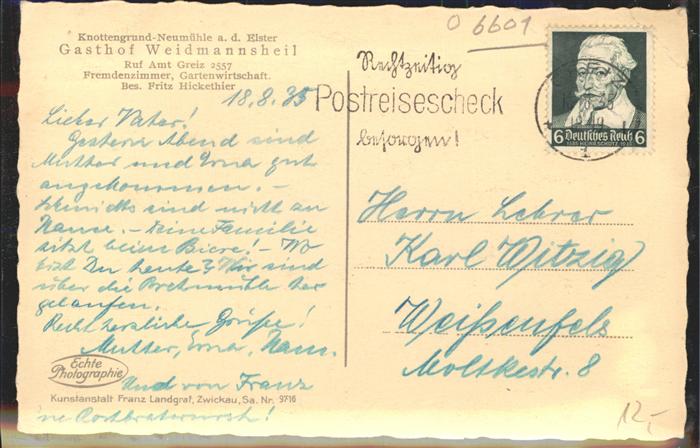 O 6601
Knottengrund-Neumühle a. d. Elster
Gasthof Weidmannsheil
Ruf Amt Greiz 2557
Fremdenzimmer, Gartenwirtschaft.
Bes. Fritz Hickethier
18.8.35
Lieber Vater!
Gestern Abend sind
Mutter und Erna gut
angekommen. –
Schmidts sind nicht an
Hause. – Seine Familie
sitzt beim Biere! – Wo
bist Du heute? Wir sind
über die Bretmühle her
gelaufen.
Recht herzliche Grüße!
Mutter, Erna,
Und von Franz
'ne Rostbratwurst!
Echte
Photographie
Kunstanstalt Franz Landgraf, Zwickau, Sa. Nr. 9716
Rechtzeitig
Postreisescheck
besorgen!
6 Deutsches Reich 6
1585 HEINR. SCHÜTZ 1935
Herrn Lehrer
Karl Witzig
Weißenfels
Moltkestr. 8
12,-